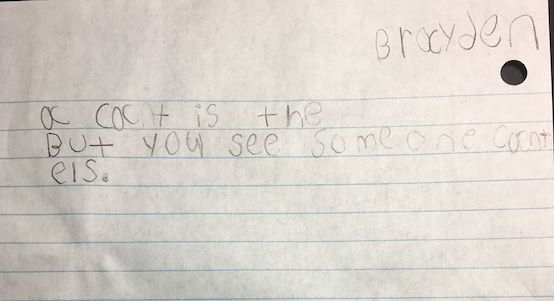 Brayden
a cat is the
But you see someone cant
els.